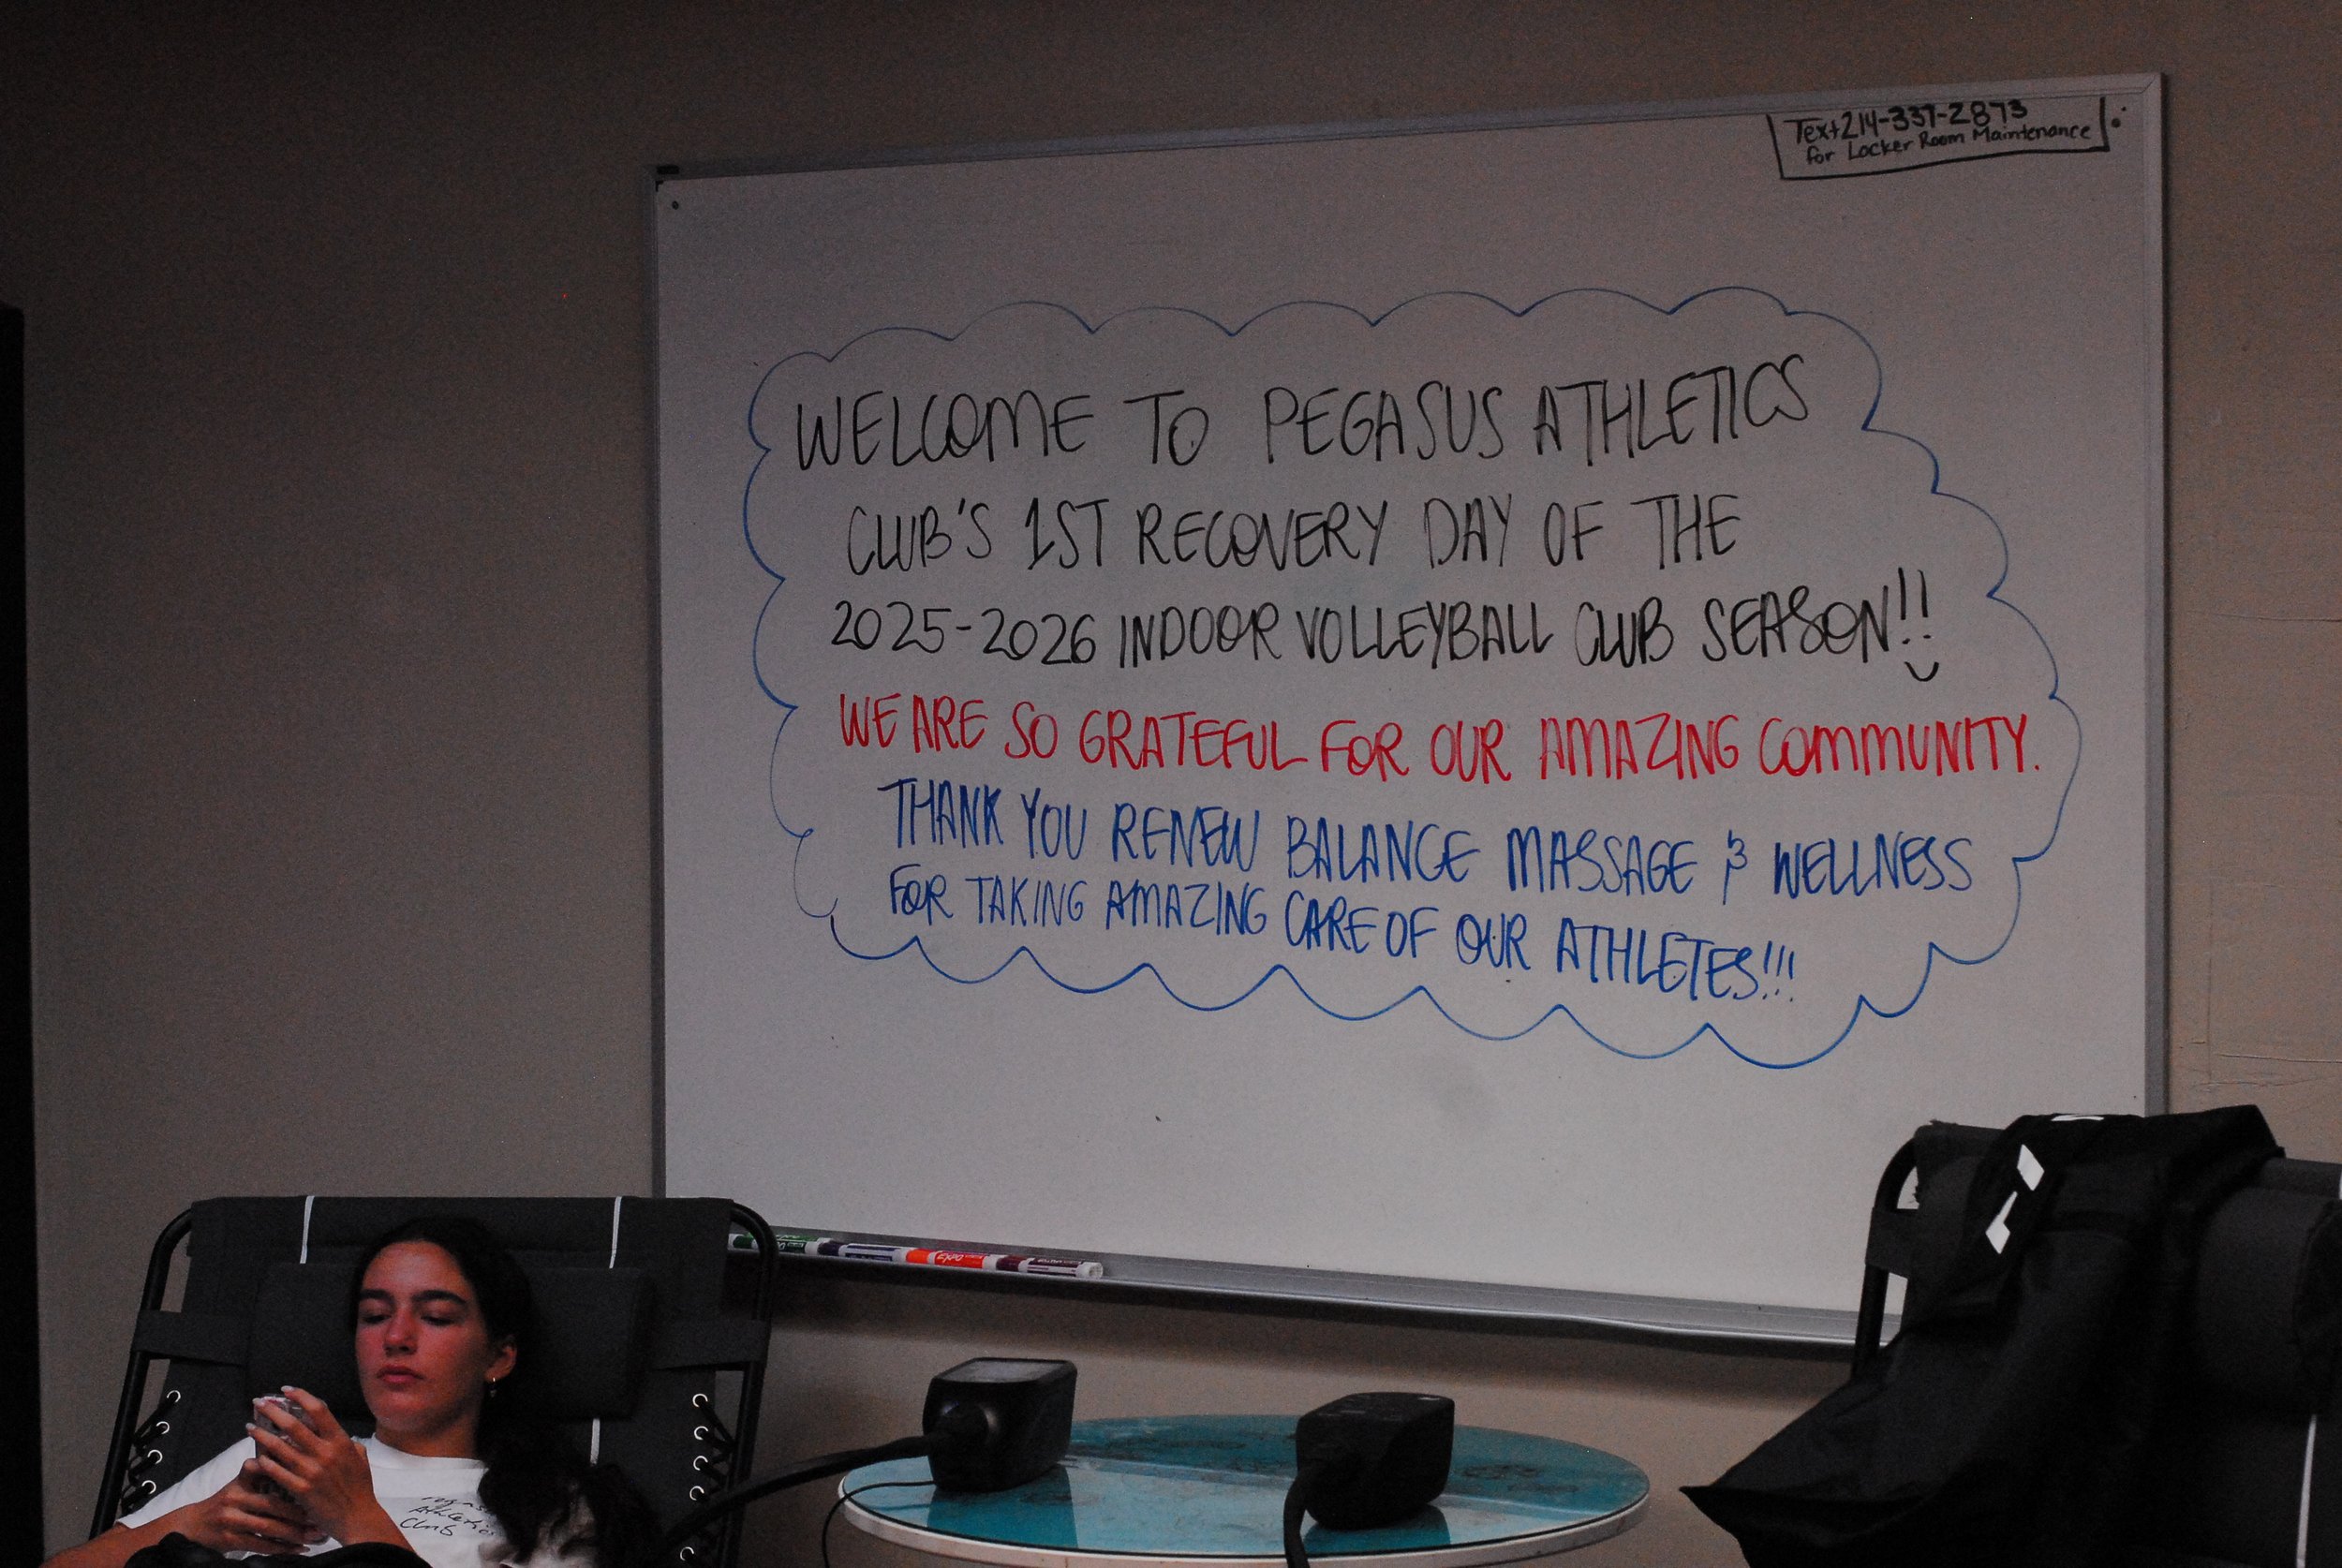 Text 214-337-2873
for Locker Room Maintenance
WELCOME TO PEGASUS ATHLETICS
CLUB'S 1ST RECOVERY DAY OF THE
2025-2026 INDOOR VOLLEYBALL CLUB SEASON!!
WE ARE SO GRATEFUL FOR OUR AMAZING COMMUNITY.
THANK YOU RENEW BALANCE MASSAGE & WELLNESS
FOR TAKING AMAZING CARE OF OUR ATHLETES!!!
EXPO
Athletics
Club